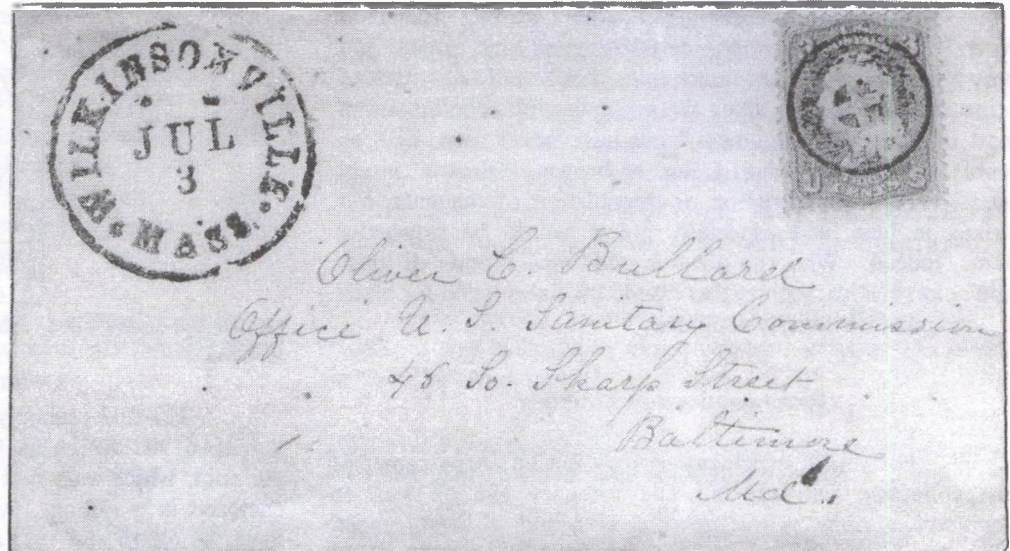 WILKINSONVILLE
JUL
3
MASS.
Oliver C. Bullard
Office U. S. Sanitary Commission
46 So. Sharp Street
Baltimore
Md.